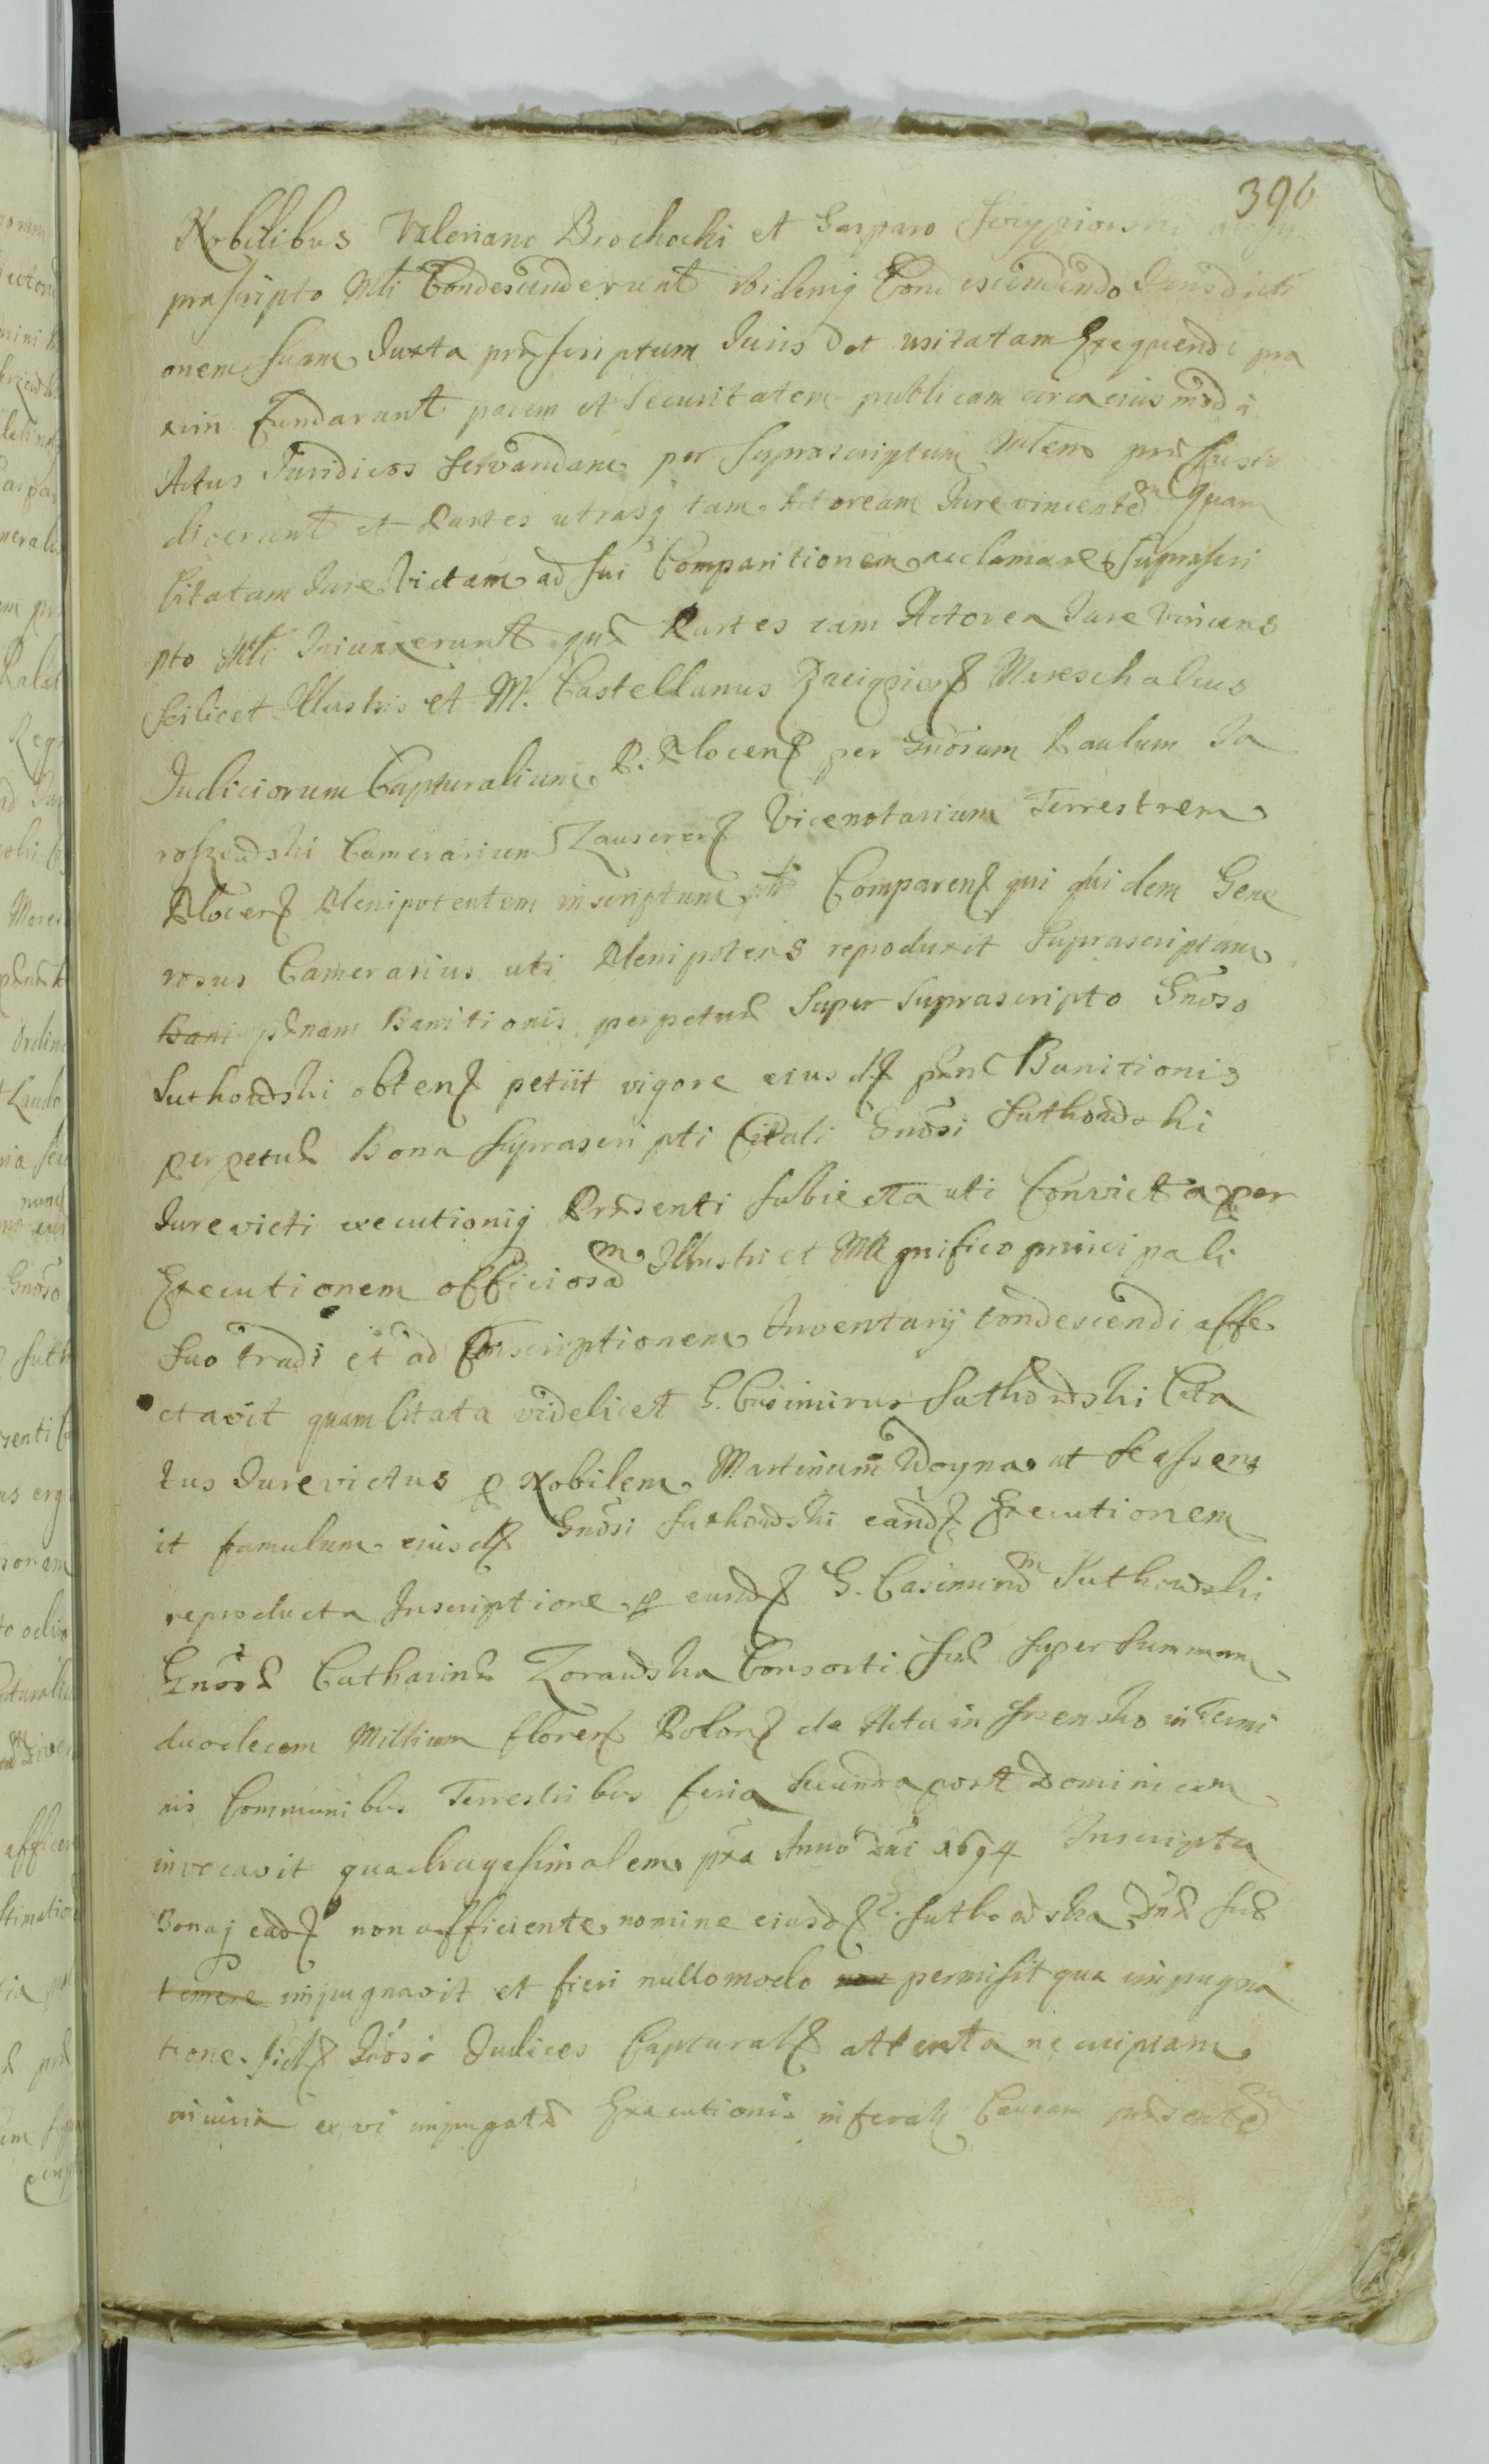 396
Nobilibus Valeriano Brochocki et Gasparo
prascripto Mli Condescenderunt ibidemq Condescendendo Jurisdicti
onem suam Juxta præscriptum Juris et usitatam Exequendi pra
xim Fundarunt pacem et Securitatem publicam circa eiusmodi
Actus Juridicos servandam per suprascriptum Mlem
dixerunt et Partes utrasq tam Actoream Jurevincentē quam
Citatam Jurevictam ad sui Comparitionem acclamare suprascri
pto Mli Iniunxerunt quæ Partes tam Actorea Jure Vincens
scilicet Illustris et M. Castellanus Marschalcus
Judiciorum Capturalium P. Plocens per Gnosum Paulum Ja
roszewski Camerarium Zauscrens Vicenotarium Terrestrem
Plocens Plenipotentem inscriptum Comparens qui quidem Gene
rosus Camerarius uti Plenipotens reproduxit Suprascriptam
Bani pænam Banitionis perpetuæ super suprascripto Gnoso
Suthowski obtens petiit vigore eiusd pænæ Banitionis
perpetuæ Bona suprascripti Citati Gnosi Suthowski
Jurevicti executioniq Præsenti subiecta uti Convicta per
Executionem officiosam Illustri et Magnifico principali
suo tradi et ad Conscriptionem Inventarij condescendi affe
ctavit quam Citata videlicet G. Casimirus Suthowski Cita
tus Jurevictus p Nobilem Martinum Woyna ut se asseru
it famulum eiusd Gnosi Suthowski eand Executionem
reproducta Inscriptione p eund G. Casimirum Suthowski
Gnosæ Catharinæ Zorawska Consorti suæ super summam
duodecem Millium floren Polon de Actu in in Termi
nis Communibus Terrestribus feria secunda post Dominicam
invocavit quadragesimalem pxa Anno Dni 1694 Inscripta
Bonaq ead non afficiente nomine eiusd G. Suthowska Dnæ suæ
temere impugnavit et fieri nullomodo non permisit qua impugna
tione Gnosi Judices Captural attenta
iniuria ex vi impugatæ Executionis Causam præsentē